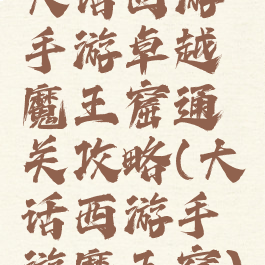 大话西游
手游卓越
魔王窟通
关攻略(大
话西游手
游魔王窟)